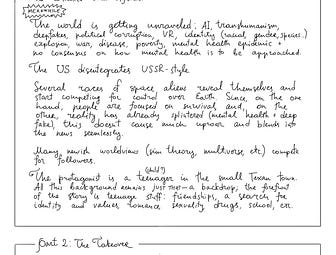 MEANWHILE
The world is getting unraveled; AI, transhumanism,
deepfakes, political corruption, VR, identity (racial, gender, species)
explosion, war, disease, poverty, mental health epidemic +
no consensus on how mental health is to be approached.
The US disintegrates USSR-style
Several races of space aliens reveal themselves and
start competing for control over Earth. Since, on the one
hand, people are focused on survival and, on the
other, reality has already splintered (mental health + deep
fake), this doesn't cause much uproar and blends into
the news seamlessly.
Many newish worldviews (sim theory, multiverse etc) compete
for followers.
(child?)
The protagonist is a teenager in the small Texan town.
All this background remains just that – a backdrop; the forefront
of the story is teenage stuff: friendships, a search for
identity and values, romance, sexuality, drugs, school, etc.
Part 2: The Takeover